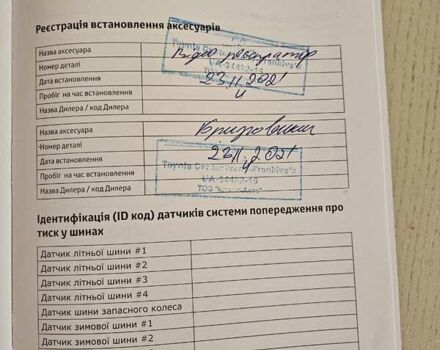 Реєстрація встановлення аксесуарів
Назва аксесуара Відео реєстратор
Номер деталі
Дата встановлення 23.11.2021
Пробіг на час встановлення 4
Назва Дилера / код Дилера
Назва аксесуара Бризговики
Номер деталі
Дата встановлення 23.11.2021
Пробіг на час встановлення 4
Назва Дилера / код Дилера
Ідентифікація (ID код) датчиків системи попередження про
тиск у шинах
Датчик літньої шини #1
Датчик літньої шини #2
Датчик літньої шини #3
Датчик літньої шини #4
Датчик шини запасного колеса
Датчик зимової шини #1
Датчик зимової шини #2